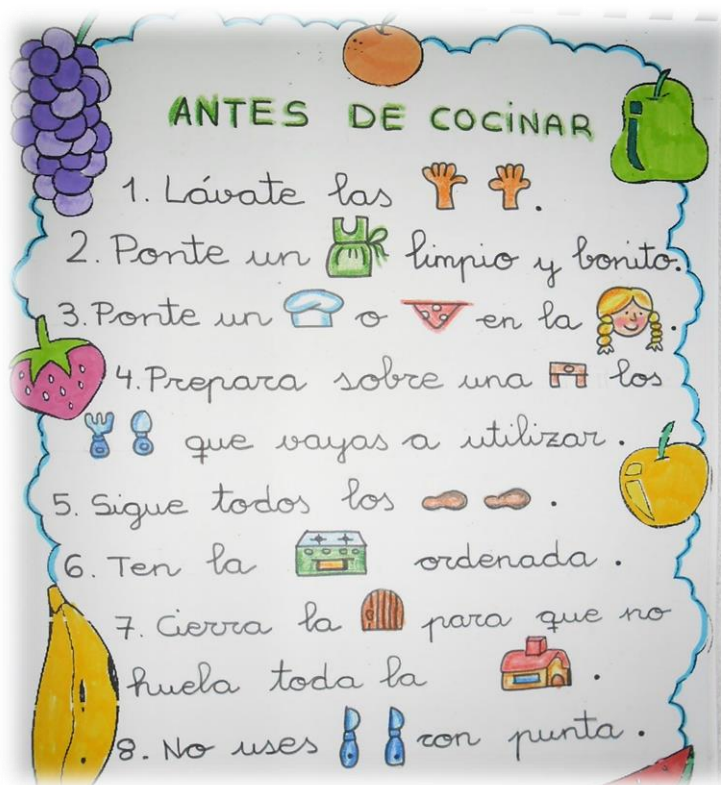 ANTES DE COCINAR
1. Lávate las .
2. Ponte un limpio y bonito.
3. Ponte un o en la .
4. Prepara sobre una los
que vayas a utilizar.
5. Sigue todos los .
6. Ten la ordenada.
7. Cierra la para que no
huela toda la .
8. No uses con punta.